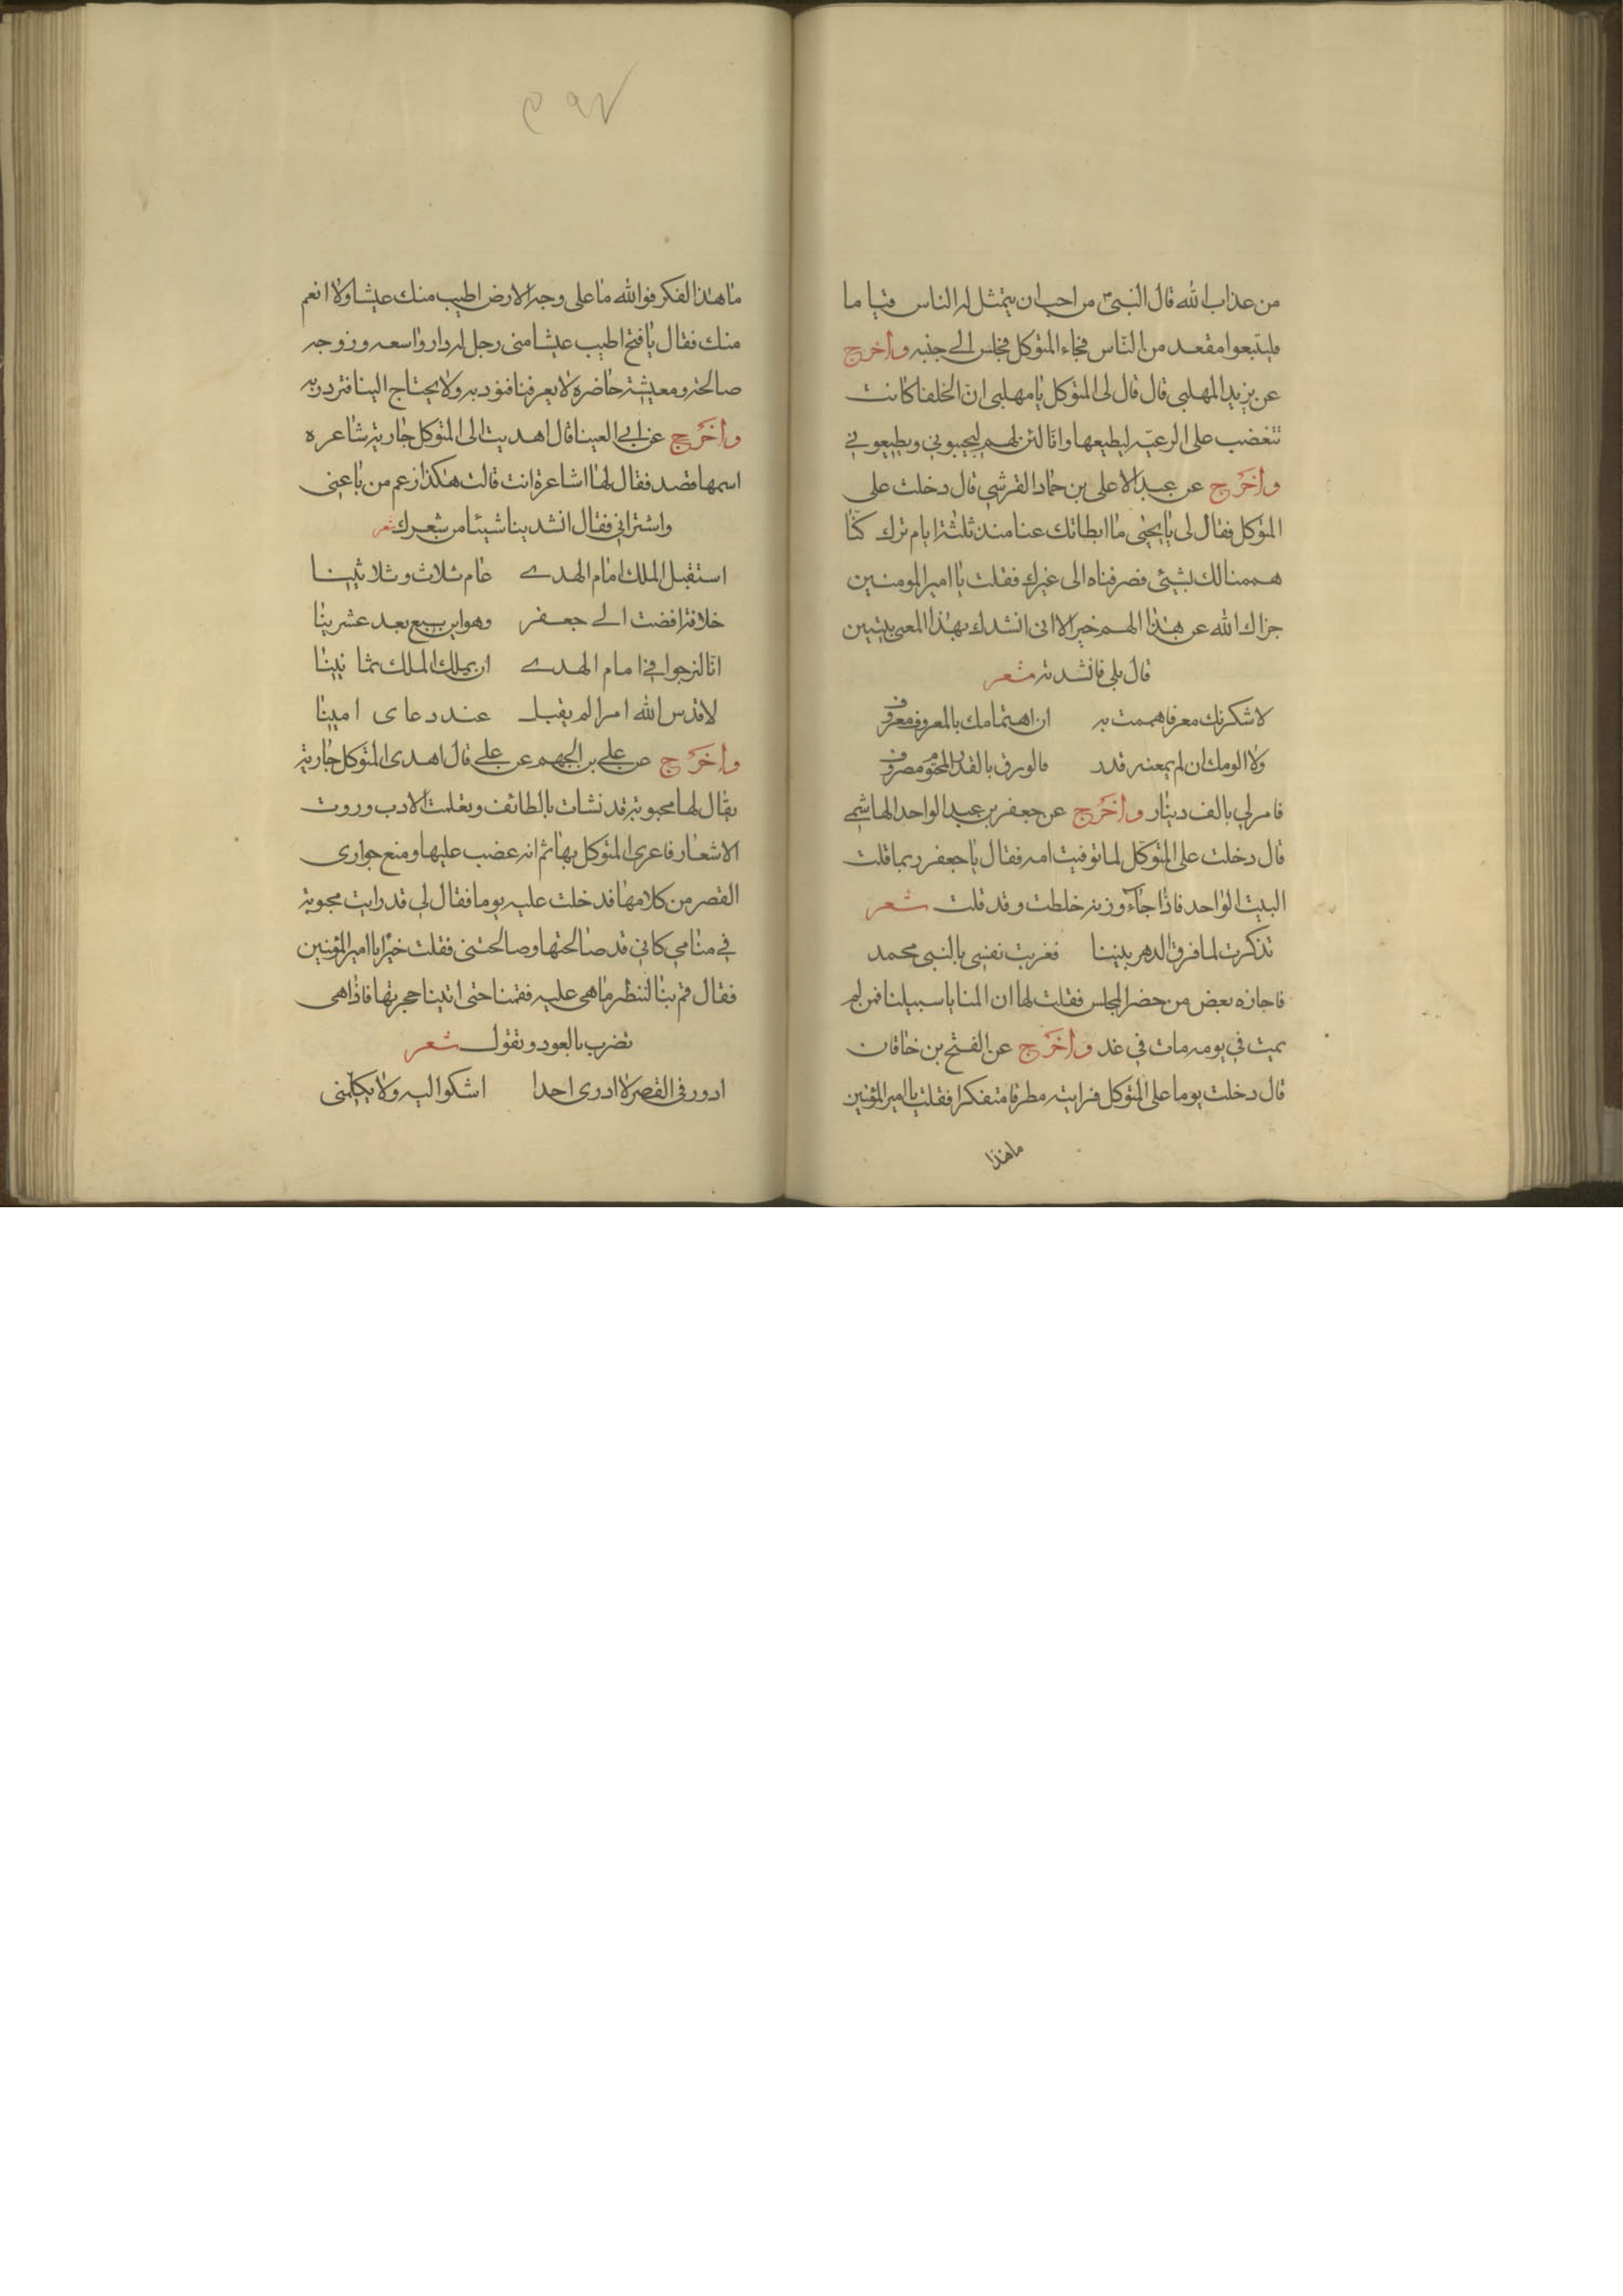 من عذاب الله قال النبي من احب ان يتمثل له الناس قياما
فليتبعوا مقعد من النّاس فجاء المتوكل فجلس الى جنبه واخرج
عن يزيد المهلبى قال قال لى المتوكل يا مهلبى ان الخلفا كانت
تتغضب على الرعيّه ليطيعها وانا لئن لهم ليحبوني ويطيعوني
واخرج عن عبد الاعلى بن حماد القرشي قال دخلت على
المتوكل فقال لى يا يحيى ما ابطاتك عنا منذ ثلثة ايام ترك كنّا
هممنالك بشيئ فصرفناه الى غيرك فقلت يا امير المومنين
جزاك الله عن هذا الهم خيرا الا انى انشدك بهذا المعى بيتين
قال بلى فانشدته شعر
لاشكرنك معرفا هممت به ان اهتمامك بالمعروف معروف
ولا الومك ان لم يمعنه قدد فالورق بالقدر المحتوم مصروف
فامر لي بالف دينار واخرج عن جعفر بن عبد الواحد الهاشمي
قال دخلت على المتوكل لما توفيت امه فقال يا جعفر ربما قلت
البيت الواحد فاذا جاء وزنه خلطت وقد قلت شعر
تذكرت لما فرق الدهر بيننا فغريت نفسى بالنبى محمد
فاجازه بعض من حضر المجلس فقلت لها ان المنايا سبيلنا فمن لم
يمت في يومه مات في غد واخرج عن الفتح بن خاقان
قال دخلت يوما على المتوكل فرايته مطرقا متفكرا فقلت يا امير المؤمنين
ماهذا
ما هذا الفكر فوالله ما على وجه الارض اطيب منك عيشا ولا انعم
منك فقال يا فتح اطيب عيشا منى رجل له دار واسعه وزوجه
صالحة ومعيشة حاضره لا يعرفنا فنؤديه ولا يحتاج الينا فتردريه
واخرج عن ابي العينا قال اهديت الى المتوكل جارية شاعره
اسمها فضد فقال لها اشاعرة انت قالت هكذا زعم من باعنى
واشتراني فقال انشدينا شيئا من شعرك شعر
استقبل الملك امام الهدى عام ثلاث وثلاثينا
خلافة افضت الى جعفر وهو ابن سبع بعد عشرينا
انا لنرجوا في امام الهدى ان يملك الملك ثمانينا
لا قدس الله امرا لم يقبل عند دعاى امينا
واخرج عن على بن الجهم عن على قال اهدى المتوكل جارية
يقال لها محبوبة قد نشات بالطائف وتعلمت الادب وروت
الاشعار فاعرى المتوكل بها ثم انه غضب عليها ومنع جوارى
القصر من كلامها فدخلت عليه يوما فقال لي قد رايت محبوبة
في منامي كاني قد صالحتها وصالحتنى فقلت خيرًا يا امير المؤمنين
فقال قم بنا لننظر ما هى عليه فقمنا حتى اتينا حجرتها فاذا هى
تضرب بالعود وتقول شعر
ادور فى القصر لا ادرى احدا اشكوا اليه ولا يكلمنى